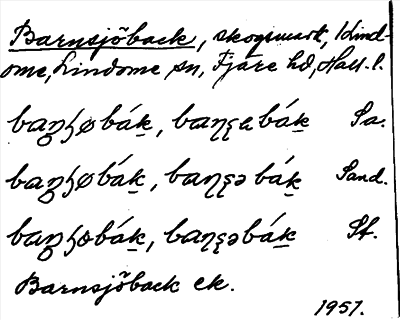 Barnsjöback, skogsmark, Lind-
ome, Lindome sn, Fjäre hd, Hall. l.
baŋɧø bák̠, baɳʂə bák̠ Sa.
baŋɧø bák̠, baɳʂə bák̠ Sand.
baŋɧo bák̠, baɳʂə bák̠ St.
Barnsjöback ek.
1951.